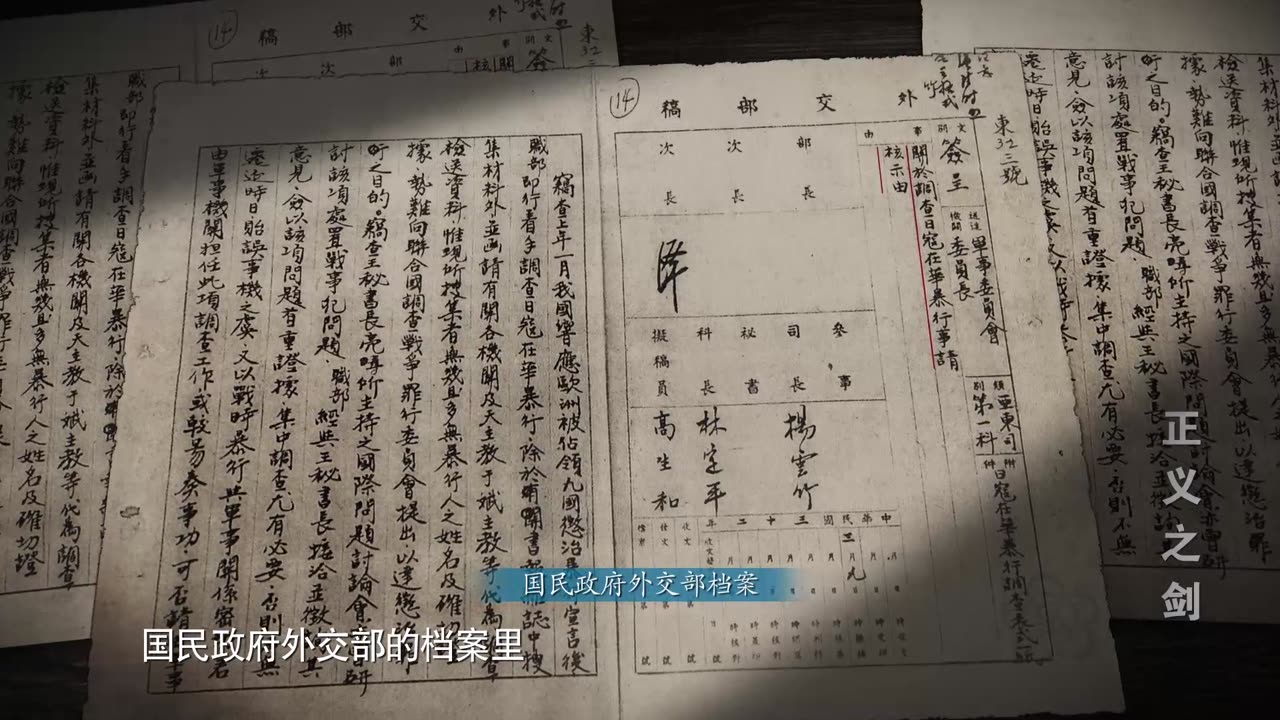 外交部稿
14
東32三號
文別 簽呈
送達機關 軍事委員會委員長
類別 亞東司第一科
附件 日寇在華暴行調查表式一紙
事由 關於調查日寇在華暴行事請核示由
部長
次長
次長
參事
司長
秘書
科長
擬稿員
楊雲竹
林定平
高生和
中華民國三十二年
竊查上年一月我國響應歐洲被佔領九國懲治暴宣言後
職部即行着手調查日寇在華暴行，除於有關書報雜誌中搜
集材料外並函請有關各機關及天主教于斌主教等代為調查
檢送資料，惟現所搜集者無幾且多無暴行人之姓名及確切證
據，勢難向聯合國調查戰爭罪行委員會提出以達懲治
之目的。竊查王秘書長亮疇所主持之國際問題討論會亦曾研
討該項處置戰事犯問題 職部經與王秘書長接洽並徵詢其
意見，僉以該項問題首重證據，集中調查尤有必要，否則不無
遷延時日貽誤事機之虞，又以戰時暴行與軍事關係密切若
由軍事機關担任此項調查工作，或較易奏事功，可否請軍事
正义之剑
国民政府外交部档案
国民政府外交部的档案里